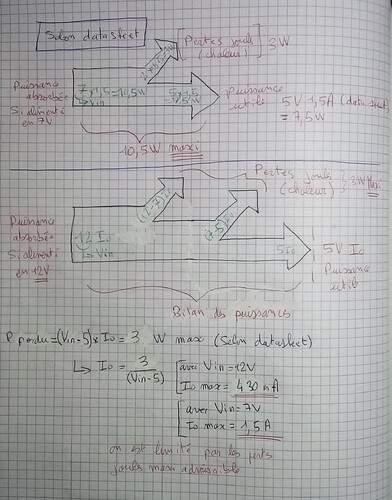 Selon datasheet
Pertes joule
(chaleur)
3W
Puissance
absorbée
Si alimenté
en 7V
7 x 1,5 = 10,5W
↳ Vin
5 x 1,5
= 7,5W
Puissance
utile
5V 1,5A (datasheet)
= 7,5W
10,5W maxi
Pertes joules
(chaleur)
3W Maxi
Puissance
absorbée
Si alimenté
en 12V
12 Io
↳ Vin
(12-7) Io
(7-5) Io
5 Io
5V Io
Puissance
utile
Bilan des puissances
P. perdu = (Vin-5) x Io = 3 W max (Selon datasheet)
↳ Io = 3 / (Vin-5)
avec Vin = 12V
Io max = 430 mA
avec Vin = 7V
Io max = 1,5 A
on est limité par les pertes
joules maxi admissible